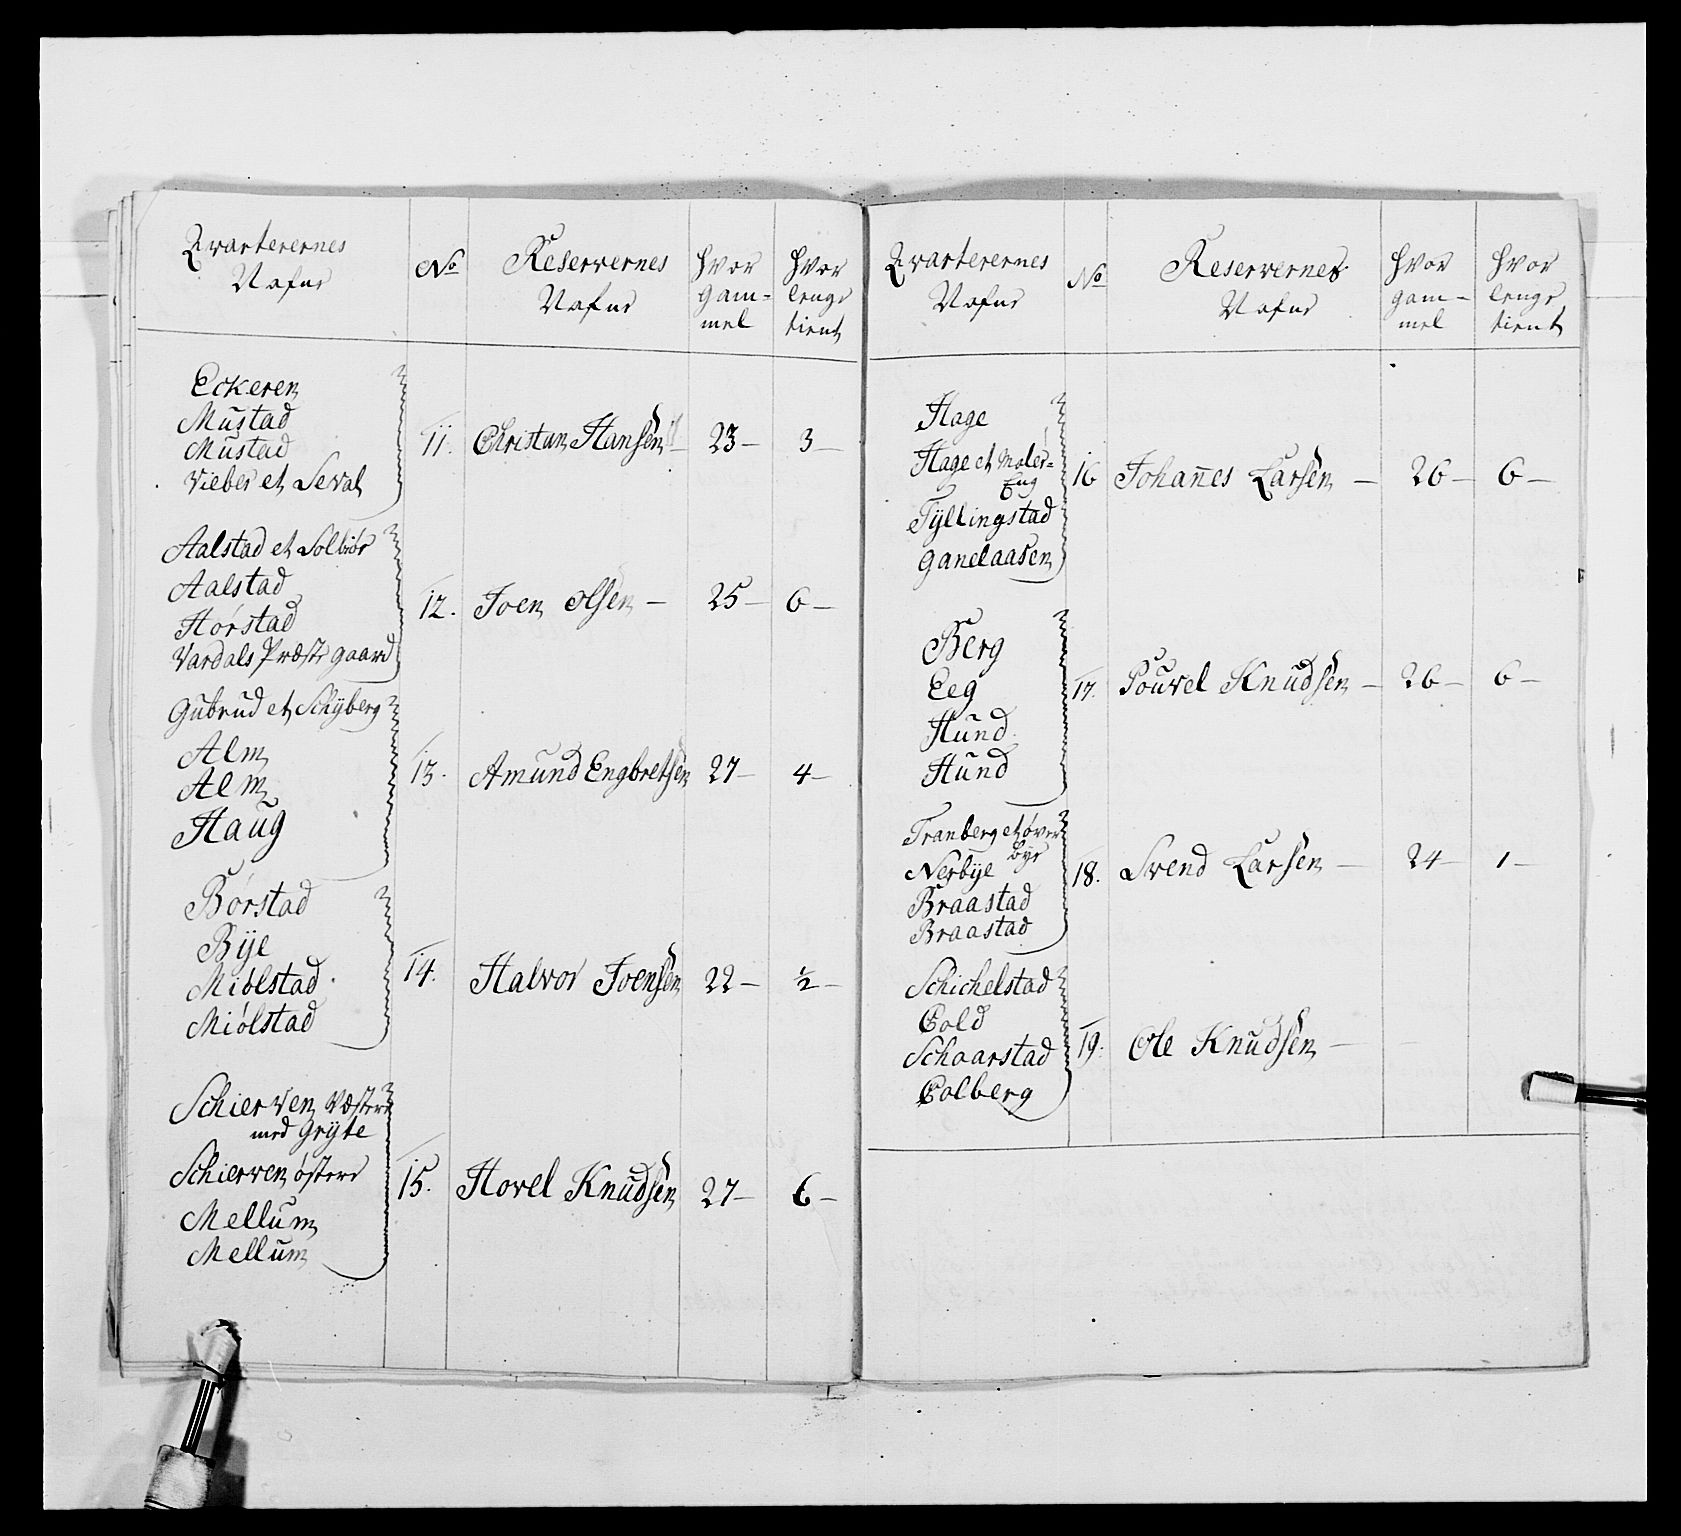 Qvarterernes
Nafne
No
Reservernes
Nafne
Hvor
Gam=
mel
Hvor
lenge
tient
Eckeren
Mustad
Mustad
Vieber et Seval
11. Christian Hansen 23— 3—
Aalstad et Solbiør
Aalstad
Hørstad
Vardals Præste gaard
12. Joen Olsen — 25— 6—
Gubrud et Schÿberg
Alm
Alm
Haug
13. Amund Engbretsen 27— 4—
Børstad
Bÿe
Miølstad
Miølstad
14. Halvor Joensen 22— ½—
Schierven Væstere
med Grÿte
Schierven østere
Mellum
Mellum
15. Hovel Knudsen 27— 6—
Qvarterernes
Nafne
No
Reservernes
Nafne
Hvor
gam—
mel
Hvor
lenge
tient
Hage
Hage et Moler=
Eng
Tÿllingstad
Ganelaasen
16 Johannes Larsen — 26— 6—
Berg
Eeg
Hund
Hund
17. Pouvel Knudsen — 26— 6—
Tranberg et øver
bÿe
Nerbÿe
Braastad
Braastad
18. Svend Larsen — 24— 1—
Schichelstad
Cold
Schaarstad
Colberg
19. Ole Knudsen —